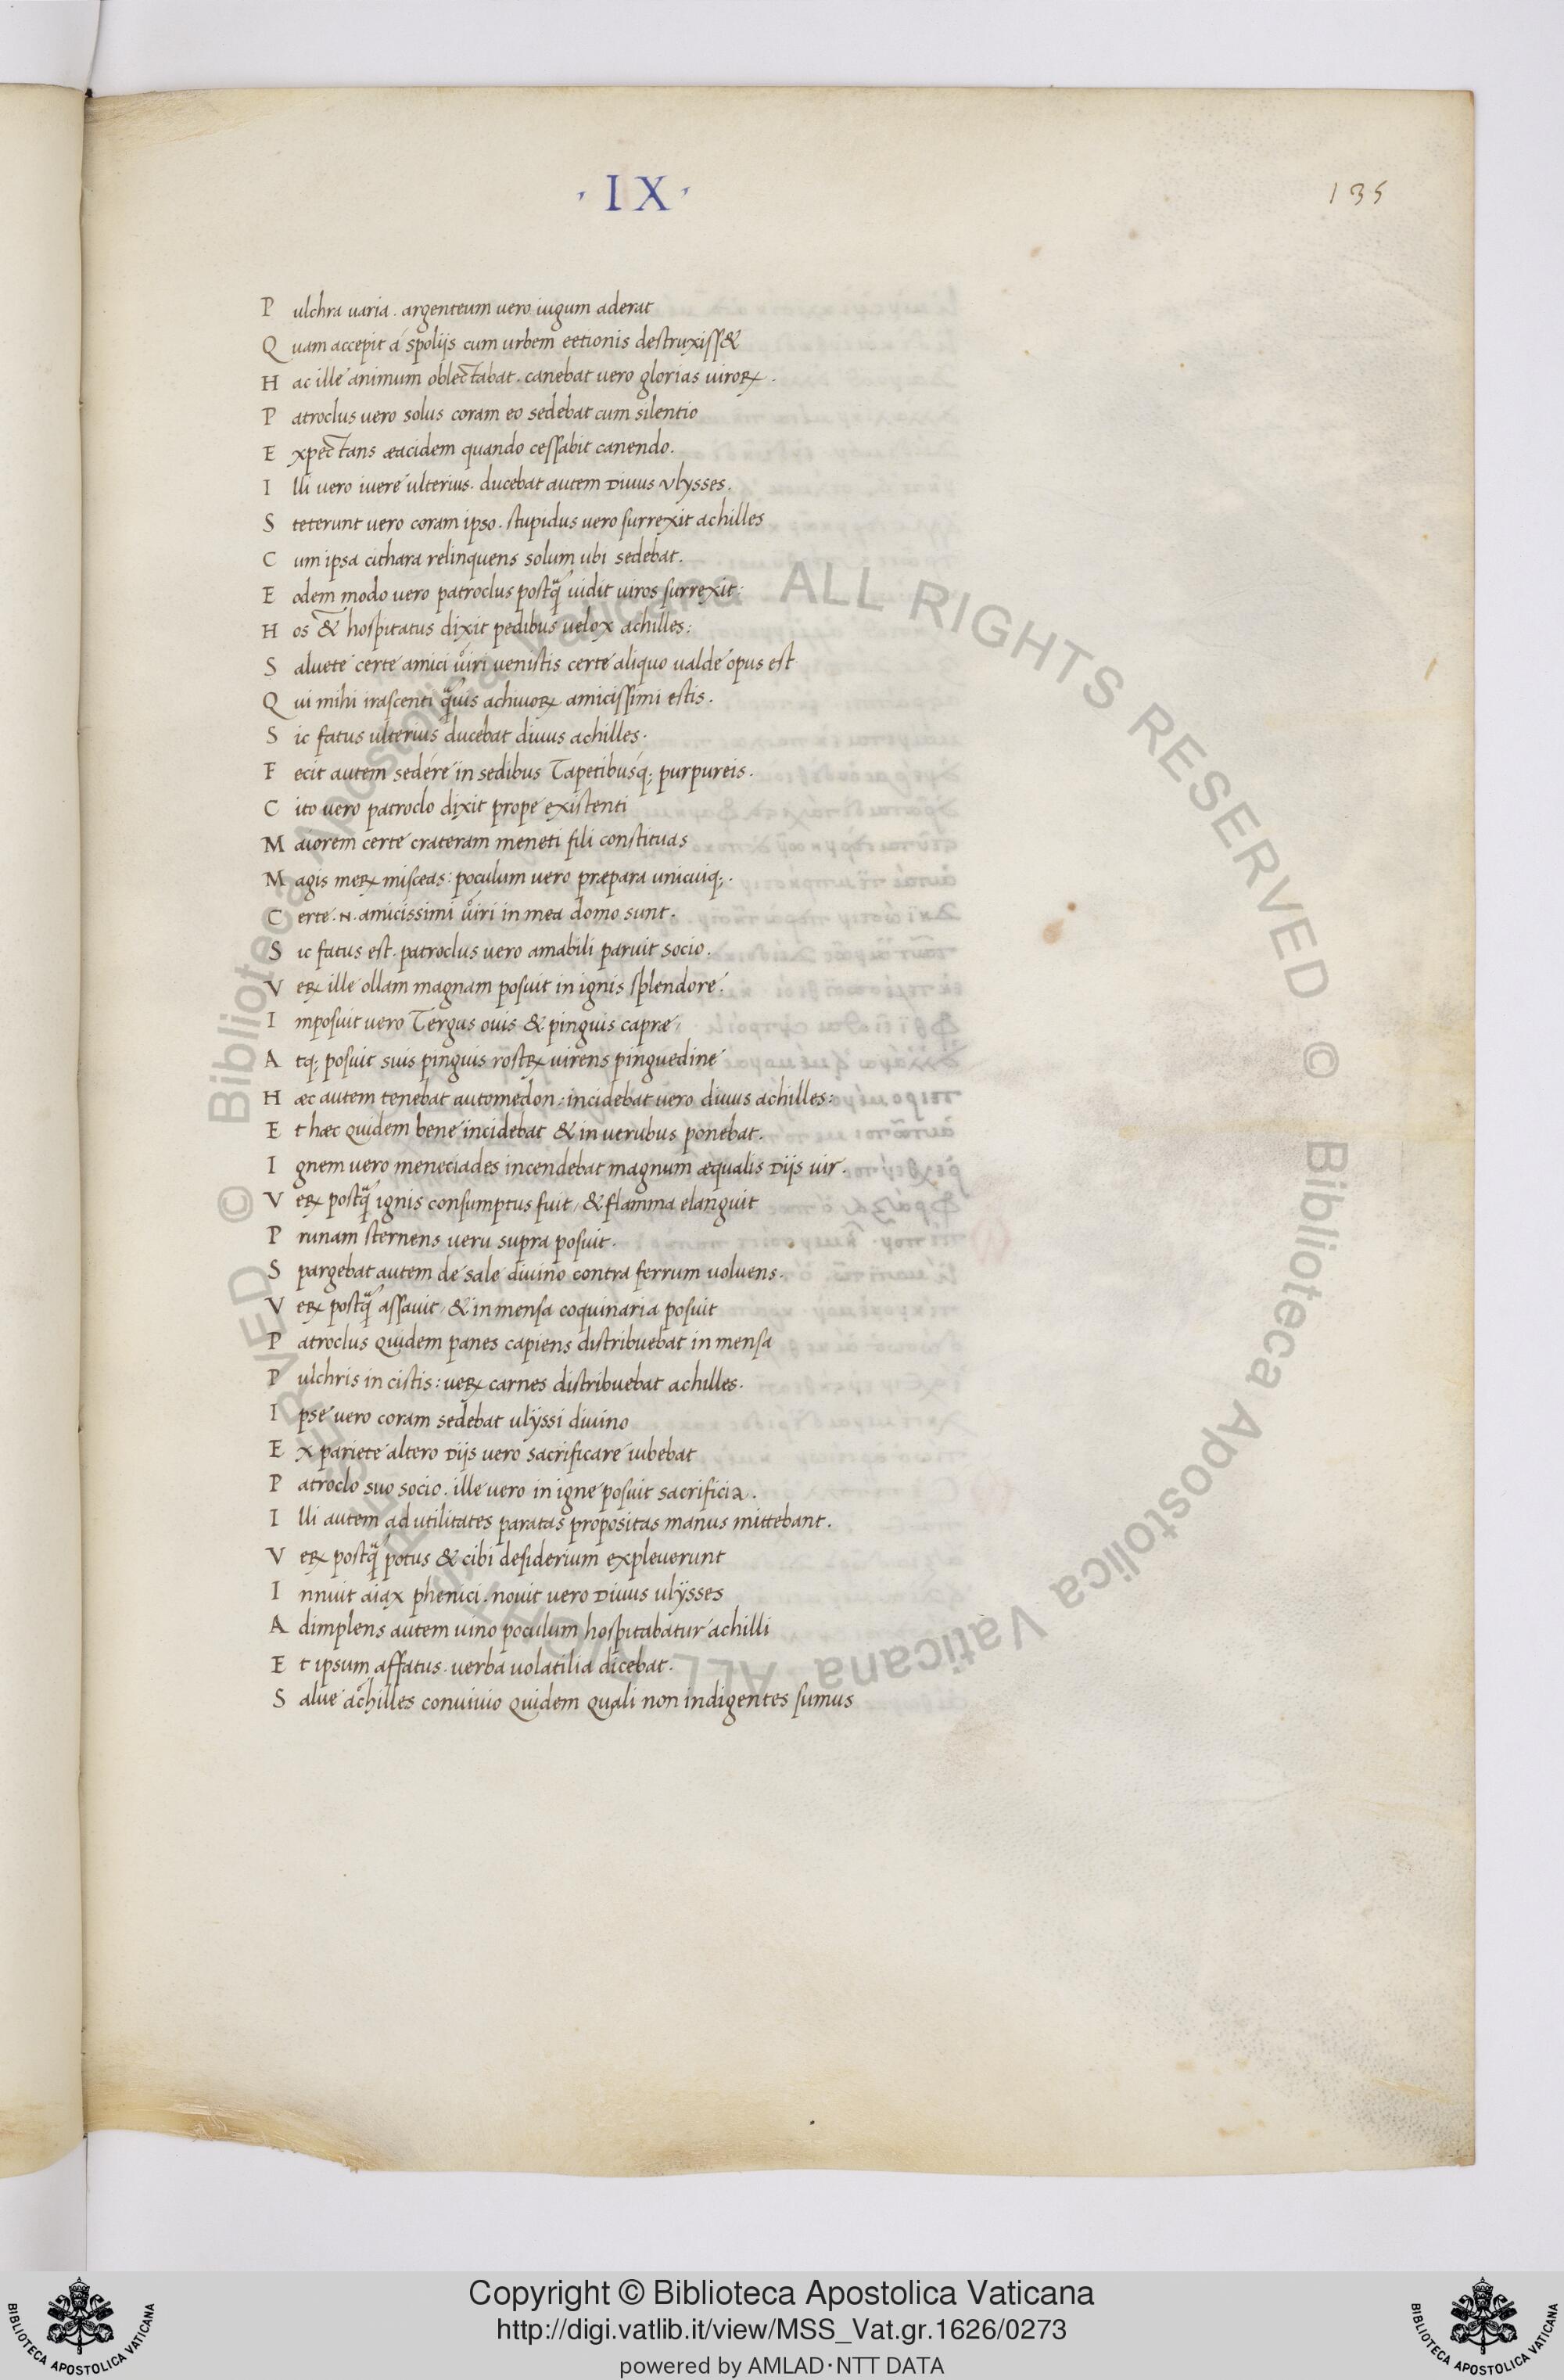 · IX ·
135
P ulchra uaria . argenteum uero iugum aderat
Q uam accepit á spolijs cum urbem eetionis destruxiss&
H ac ille animum oblectabat . canebat uero glorias uiroꝝ .
P atroclus uero solus coram eo sedebat cum silentio
E xpectans æacidem quando cessabit canendo .
I lli uero iuere ulterius . ducebat autem Diuus Vlysses .
S teterunt uero coram ipso . stupidus uero surrexit achilles
C um ipsa cithara relinquens solum ubi sedebat .
E odem modo uero patroclus postꝗ̃ uidit uiros surrexit :
H os & hospitatus dixit pedibus uelox achilles :
S aluete certe amici uiri uenistis certe aliquo ualde opus est
Q ui mihi irascenti ꝗ̃uis achiuoꝝ amicissimi estis .
S ic fatus ulterius ducebat diuus achilles .
F ecit autem sedere in sedibus Tapetibusq; purpureis .
C ito uero patroclo dixit prope existenti
M aiorem certe crateram meneti fili constituas
M agis meꝝ misceas : poculum uero præpara unicuiq; .
C erte . N . amicissimi uiri in mea domo sunt .
S ic fatus est . patroclus uero amabili paruit socio .
V eꝝ ille ollam magnam posuit in ignis splendore .
I mposuit uero Tergus ouis & pinguis capræ /
A tq; posuit suis pinguis rostꝝ uirens pinguedine
H æc autem tenebat automedon : incidebat uero diuus achilles :
E t hæc quidem bene incidebat & in uerubus ponebat .
I gnem uero menetiades incendebat magnum æqualis Dijs uir .
V eꝝ postꝗ̃ ignis consumptus fuit / & flamma elanguit
P runam sternens ueru supra posuit .
S pargebat autem de sale diuino contra ferrum uoluens .
V eꝝ postꝗ̃ assauit / & in mensa coquinaria posuit
P atroclus quidem panes capiens distribuebat in mensa
P ulchris in cistis : ueꝝ carnes distribuebat achilles .
I pse uero coram sedebat ulyssi diuino
E x pariete altero Dijs uero sacrificare iubebat
P atroclo suo socio . ille uero in igne posuit sacrificia .
I lli autem ad utilitates paratas propositas manus mittebant .
V eꝝ postꝗ̃ potus & cibi desiderium expleuerunt
I nnuit aiax phenici . nouit uero Diuus ulysses
A dimplens autem uino poculum hospitabatur achilli
E t ipsum affatus . uerba uolatilia dicebat .
S alue achilles conuiuio quidem quali non indigentes sumus
© Biblioteca Apostolica Vaticana ALL RIGHTS RESERVED © Biblioteca Apostolica Vaticana ALL RIGHTS RESERVED
BIBLIOTECA APOSTOLICA VATICANA
Copyright © Biblioteca Apostolica Vaticana
http://digi.vatlib.it/view/MSS_Vat.gr.1626/0273
powered by AMLAD·NTT DATA
BIBLIOTECA APOSTOLICA VATICANA